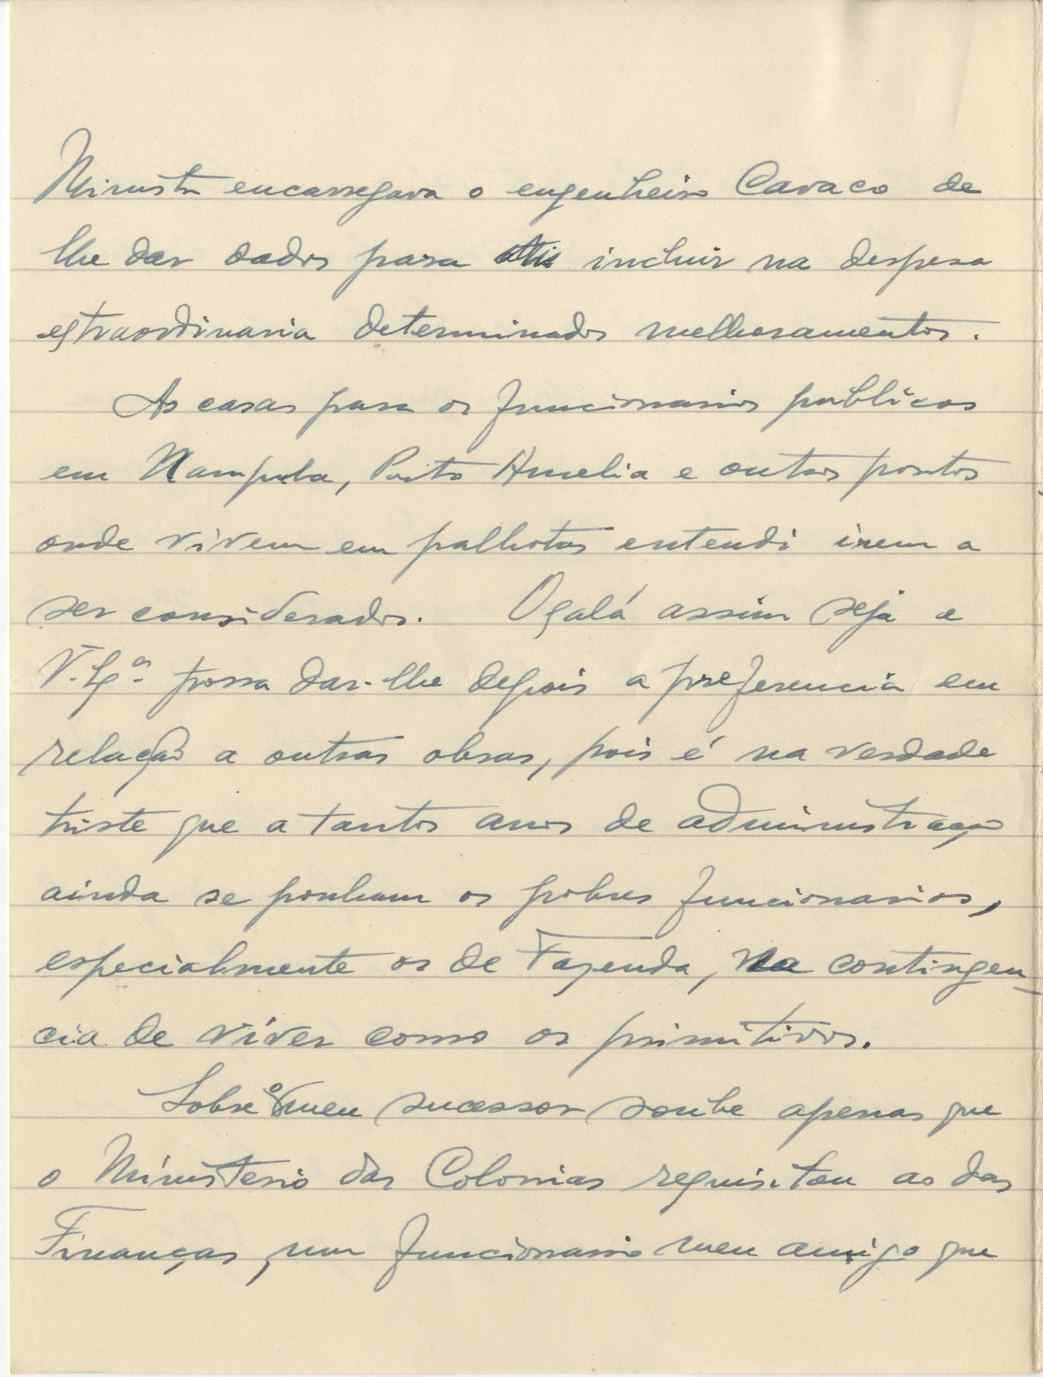 Ministro encarregava o engenheiro Cavaco de
lhe dar dados para incluir na despesa
extraordinaria determinados melhoramentos.
As casas para os funcionarios publicos
em Nampula, Porto Amelia e outros pontos
onde vivem em palhotas entendi irem a
ser considerados. Oxalá assim seja e
V. Exª. possa dar-lhe depois a preferencia em
relação a outras obras, pois é na verdade
triste que a tantos anos de administração
ainda se ponham os pobres funcionarios,
especialmente os de Fazenda, na contingen-
cia de viver como os primitivos.
Sobre o meu sucessor soube apenas que
o Ministerio das Colonias requisitou ao das
Finanças, um funcionario meu amigo que